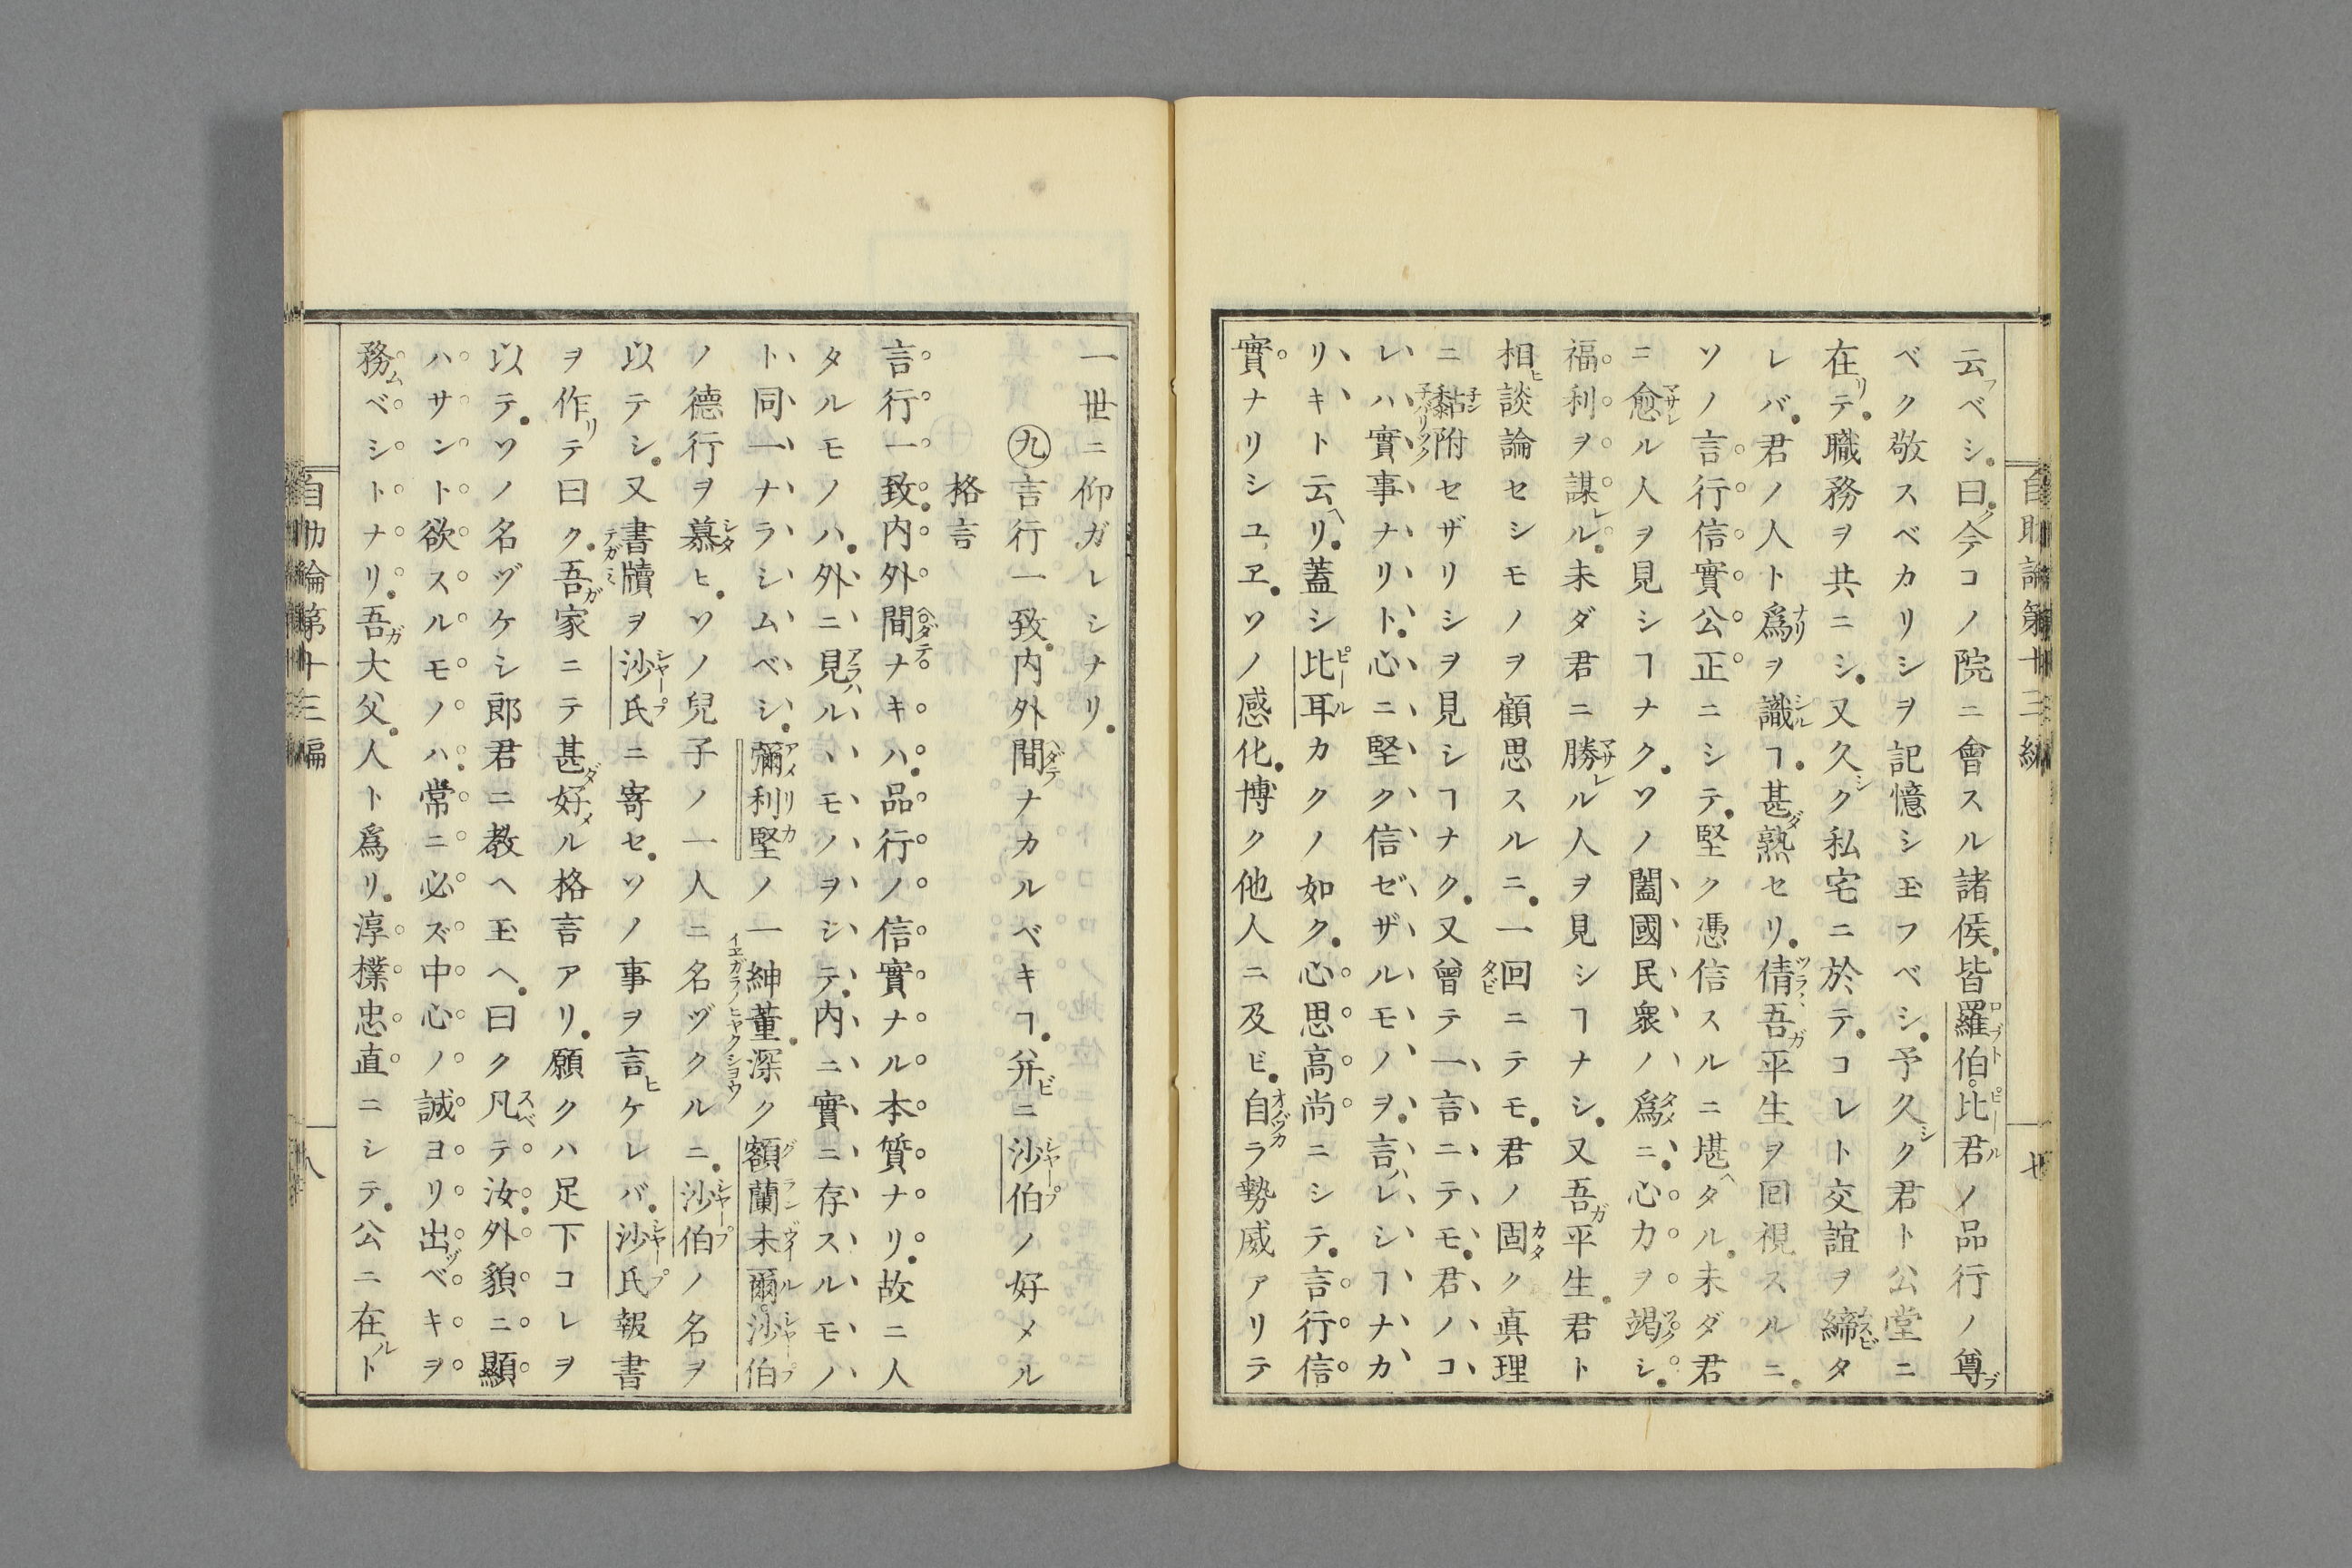 自助論第十三編
七
云フベシ。曰ク今コノ院ニ會スル諸侯。皆羅伯比君ノ品行ノ尊ブ
ベク敬スベカリシヲ記憶シ玉フベシ。予久シク君ト公堂ニ
在リテ。職務ヲ共ニシ。又久シク私宅ニ於テ。コレト交誼ヲ締ムスビタ
レバ。君ノ人ト爲ナリヲ識シルヿ。甚ダ熟セリ。倩ツラヽヽ吾ガ平生ヲ回視スルニ。
ソノ言行信實公正ニシテ。堅ク憑信スルニ堪ヘタル。未ダ君
ニ愈マサレル人ヲ見シヿナク。ソノ闔國民衆ノ爲タメニ。心力ヲ竭ツクシ。
福利ヲ謀レル。未ダ君ニ勝マサレル人ヲ見シヿナシ。又吾ガ平生。君ト
相ヒ談論セシモノヲ顧思スルニ。一回タビニテモ。君ノ固カタク真理
ニ黏附セザリシヲ見シヿナク。又曾テ一言ニテモ。君ノコ
レハ實事ナリト。心ニ堅ク信ゼザルモノヲ。言ハレシヿナカ
リキト云ヘリ。蓋シ比耳ピールカクノ如ク。心思高尚ニシテ。言行信
實ナリシユヱ。ソノ感化。博ク他人ニ及ビ。自オノヅカラ勢威アリテ
一世ニ仰ガレシナリ。
㊈言行一致。内外間ヘダテナカルベキヿ。弁ビニ沙伯シャープノ好メル
格言
言行一致。内外間ヘダテナキハ。品行ノ信實ナル本質ナリ。故ニ人
タルモノハ。外ニ見アラハルヽモノヲシテ。内ニ實ニ存スルモノ
ト同一ナラシムベシ。彌利堅アメリカノ一紳董イヱガラノヒャクショウ。深ク額蘭未爾沙伯グランヴイルシャープ
ノ德行ヲ慕シタヒ。ソノ兒子ノ一人ニ名ヅクルニ。沙伯シャープノ名ヲ
以テシ。又書牘テガミヲ沙氏シャープニ寄セ。ソノ事ヲ言ヒケレバ。沙氏シャープ報書
ヲ作リテ曰ク。吾ガ家ニテ甚ダ好メル格言アリ。願クハ足下コレヲ
以テ。ソノ名ヅケシ郎君ニ教ヘ玉ヘ。曰ク凡スベテ汝。外貌ニ顯
ハサント欲スルモノハ。常ニ必ズ中心ノ誠ヨリ出ヅベキヲ
務ムベシトナリ。吾ガ大父。人ト爲リ。淳樸忠直ニシテ。公ニ在ルト
自助論第十三編
八